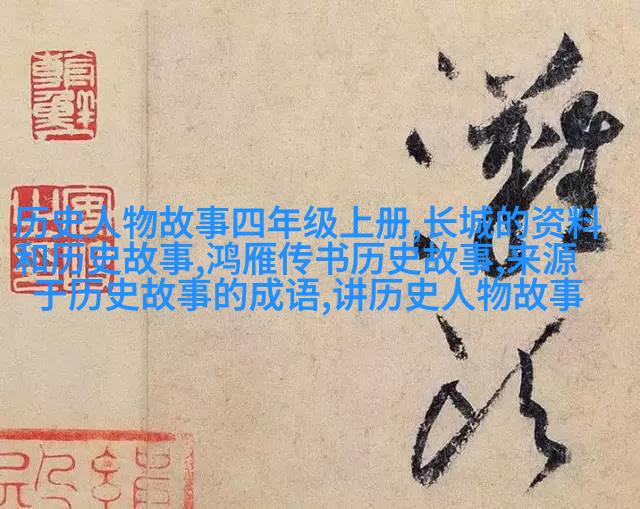 历史人物故事四年级上册,长城的资料
和历史故事,鸿雁传书历史故事,来源
于历史故事的成语,讲历史人物故事